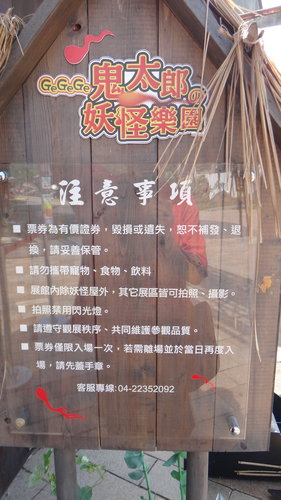 GeGeGe鬼太郎の
妖怪樂園
注意事項
■ 票券為有價證券，毀損或遺失，恕不補發、退
換，請妥善保管。
■ 請勿攜帶寵物、食物、飲料
■ 展館內除妖怪屋外，其它展區皆可拍照、攝影。
■ 拍照禁用閃光燈。
■ 請遵守觀展秩序、共同維護參觀品質。
■ 票券僅限入場一次，若需離場並於當日再度入
場，請先蓋手章。
客服專線:04-22352092